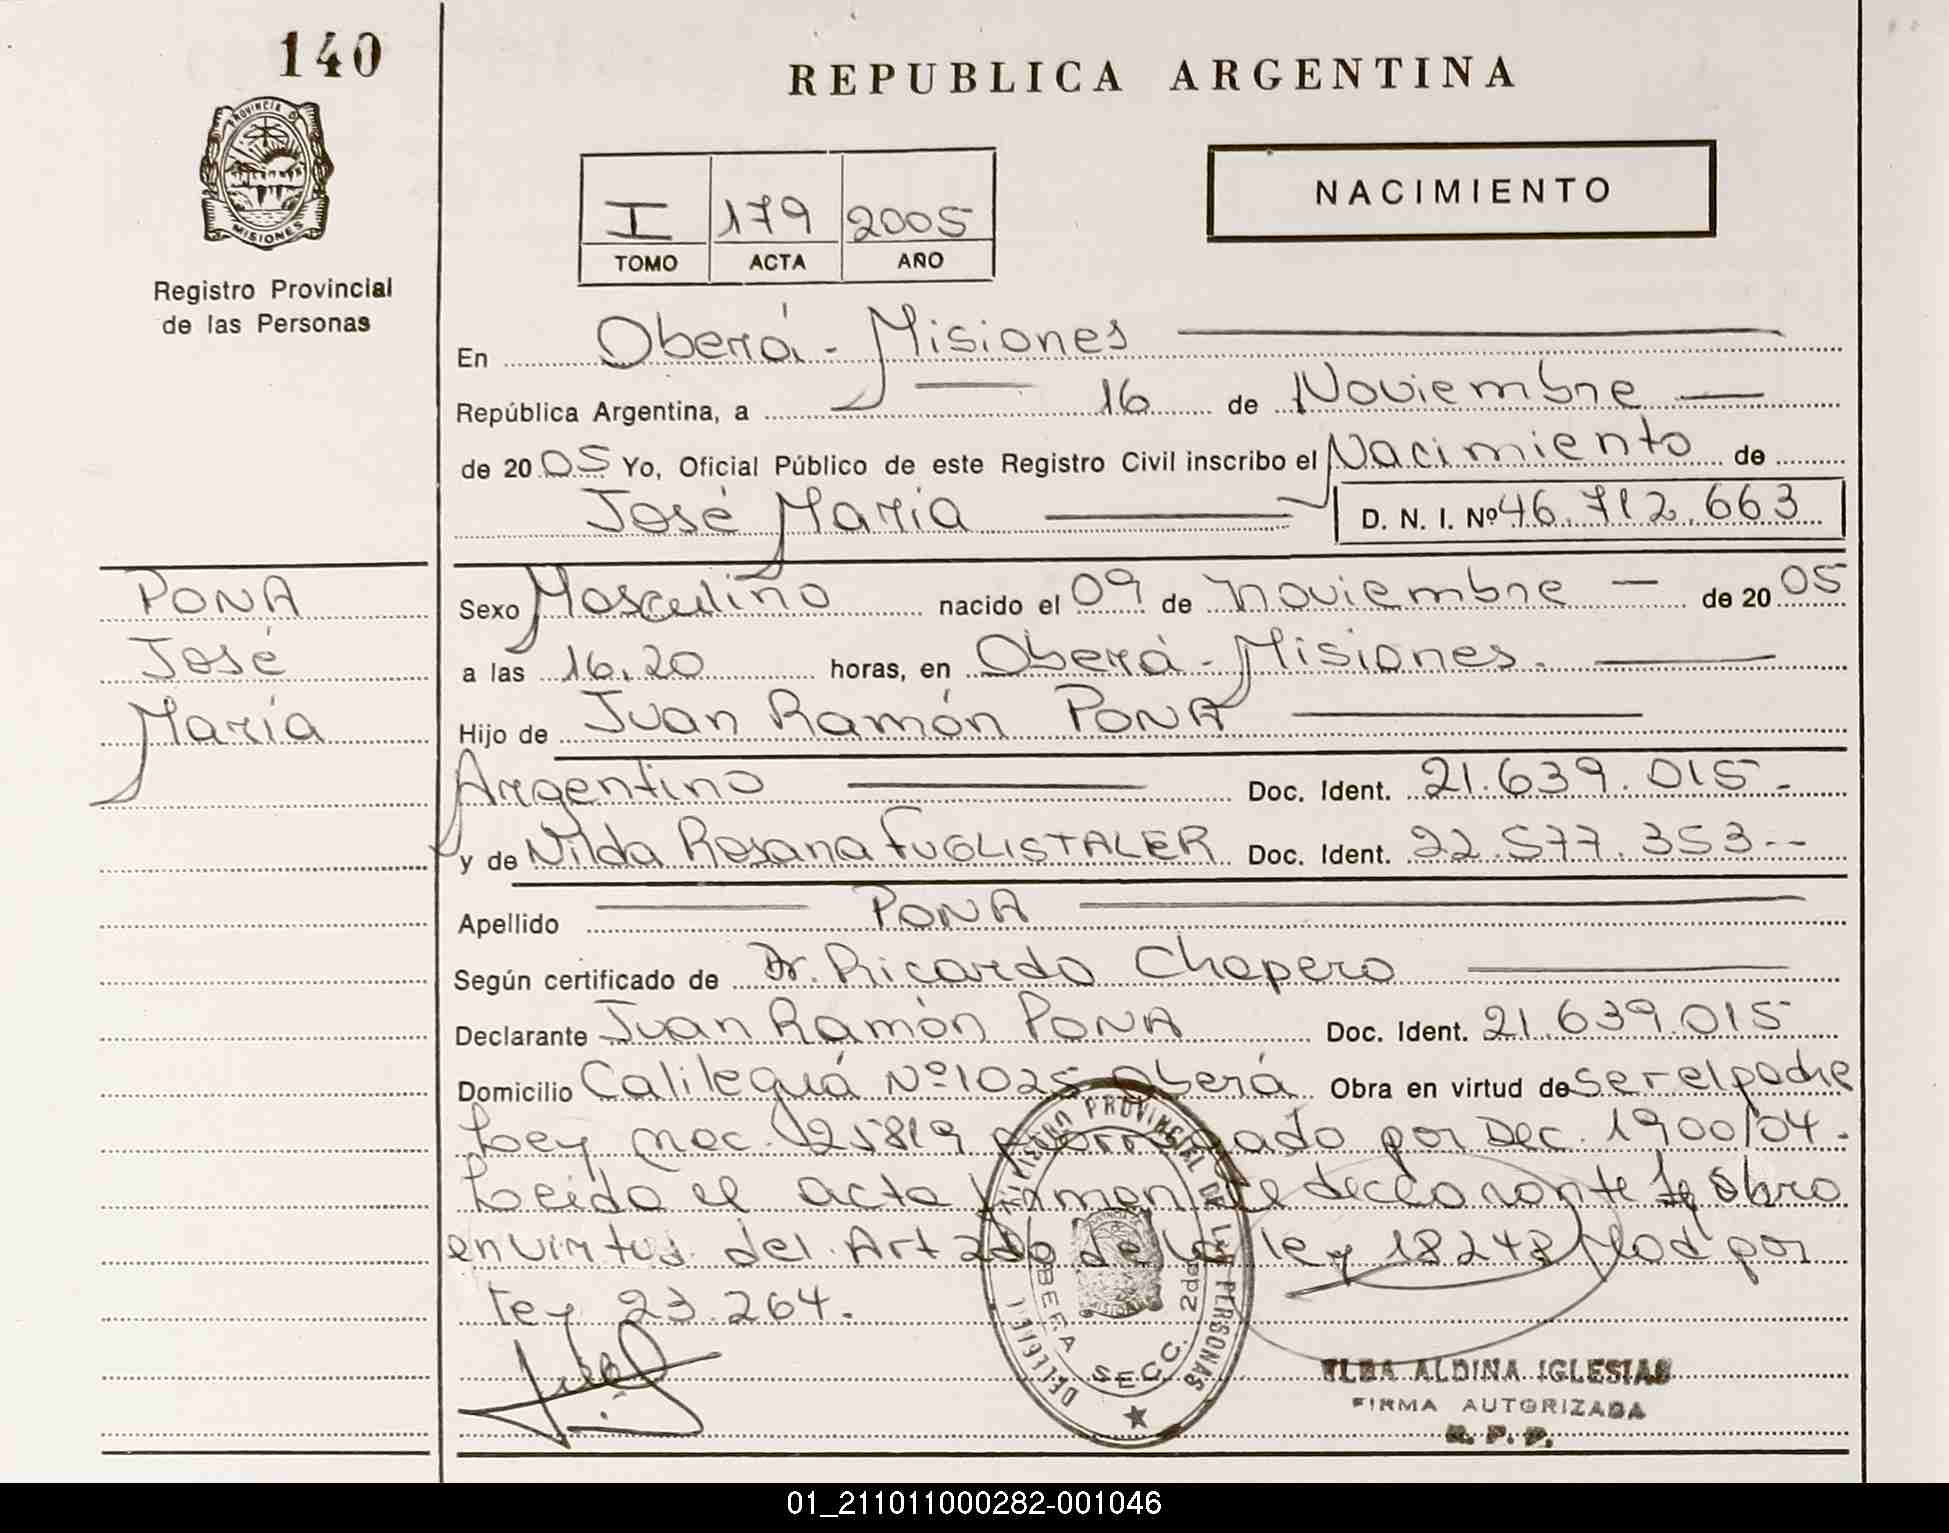 140
REPUBLICA ARGENTINA
PROVINCIA DE
MISIONES
Registro Provincial
de las Personas
NACIMIENTO
I 179 2005
TOMO ACTA AÑO
En Oberá - Misiones
República Argentina, a 16 de Noviembre
de 2005 Yo, Oficial Público de este Registro Civil inscribo el Nacimiento de
José María D. N. I. Nº 46.712.663
PONA
José
María
Sexo Masculino nacido el 09 de noviembre de 2005
a las 16.20 horas, en Oberá - Misiones.
Hijo de Juan Ramón PONA
Argentino Doc. Ident. 21.639.015-
y de Nilda Rosana FUGLISTALER Doc. Ident. 22.577.353--
Apellido PONA
Según certificado de Dr. Ricardo Chapero
Declarante Juan Ramón PONA Doc. Ident. 21.639.015
Domicilio Calileguá Nº 1025 Oberá Obra en virtud de ser el padre
Ley nac. 25819 por Dec. 1900/04.
Leída el acta declarante obro
en virtud del Art de la ley 18248 Mod por
ley 23.264.
REGISTRO PROVINCIAL DE LAS PERSONAS
OBERA SECC. 2da
ELBA ALDINA IGLESIAS
FIRMA AUTORIZADA
R. P. P.
01_211011000282-001046